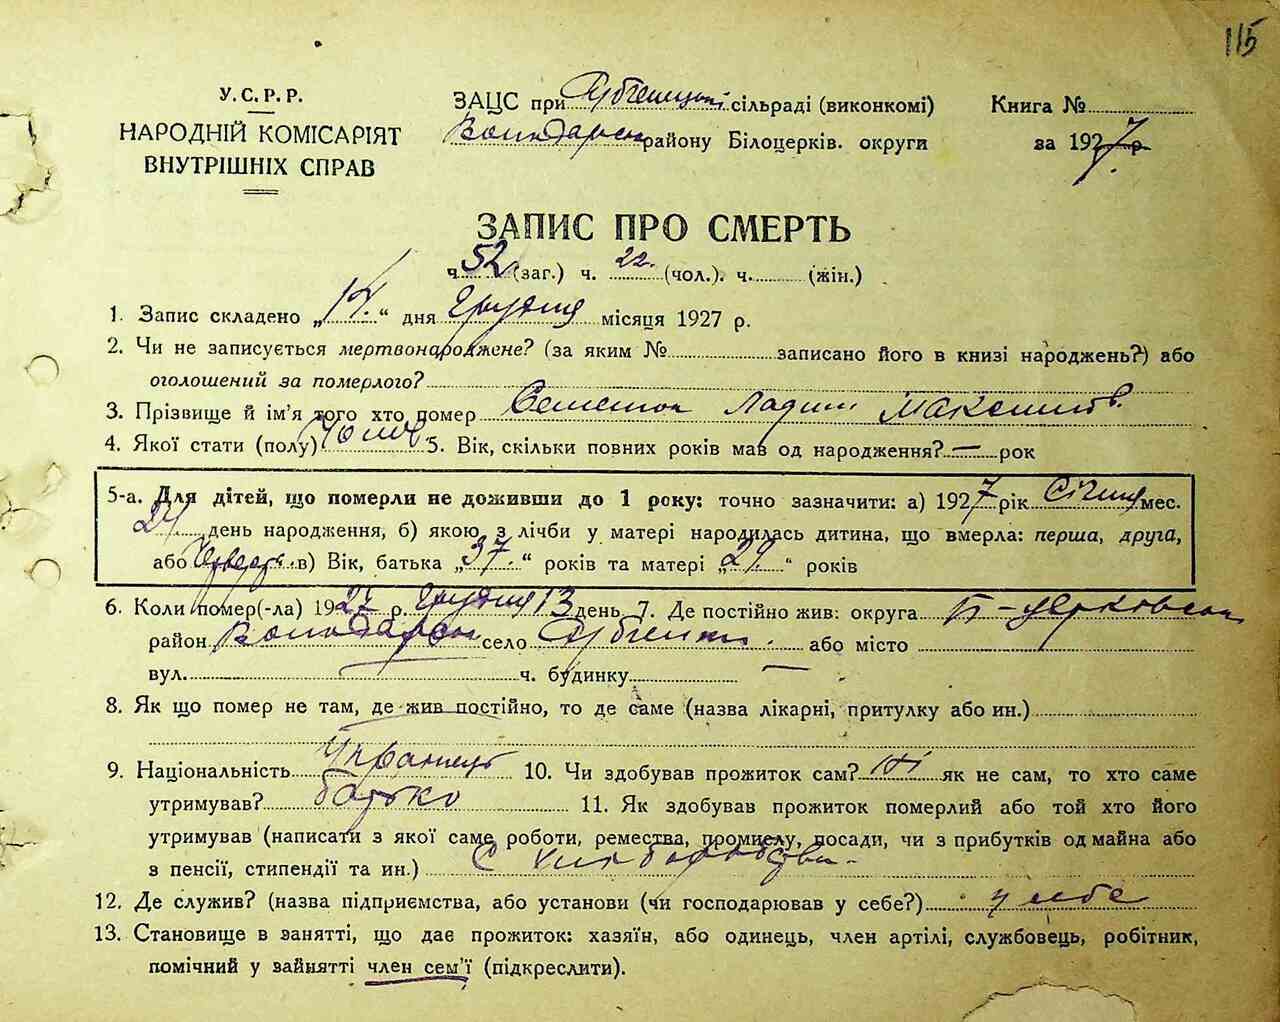 115
У.С.Р.Р.
НАРОДНІЙ КОМІСАРІЯТ
ВНУТРІШНІХ СПРАВ
ЗАЦС при сільраді (виконкомі)
Володарськ району Білоцерків. округи
Книга №
за 1927 р.
ЗАПИС ПРО СМЕРТЬ
ч. 52 (заг.) ч. 22. (чол.). ч. (жін.)
1. Запис складено „14." дня Грудня місяця 1927 р.
2. Чи не записується мертвонароджене? (за яким № записано його в книзі народжень?) або
оголошений за померлого?
3. Прізвище й ім'я того хто помер
4. Якої стати (полу) чолов 5. Вік, скільки повних років мав од народження? — рок
5-а. Для дітей, що померли не доживши до 1 року: точно зазначити: а) 1927 рік Січня мес.
24 день народження, б) якою з лічби у матері народилась дитина, що вмерла: перша, друга,
або Четверта в) Вік, батька „37." років та матері „29." років
6. Коли помер(-ла) 1927 р. Грудня 13 день 7. Де постійно жив: округа Б-Церковськ
район Володарськ село або місто
вул. ч. будинку —
8. Як що помер не там, де жив постійно, то де саме (назва лікарні, притулку або ин.)
9. Національність Українець 10. Чи здобував прожиток сам? Ні як не сам, то хто саме
утримував? батько 11. Як здобував прожиток померлий або той хто його
утримував (написати з якої саме роботи, ремества, промислу, посади, чи з прибутків од майна або
з пенсії, стипендії та ин.) С хліборобства.
12. Де служив? (назва підприємства, або установи (чи господарював у себе?) у себе
13. Становище в занятті, що дає прожиток: хазяїн, або одинець, член артілі, службовець, робітник,
помічний у зайнятті член сем'ї (підкреслити).